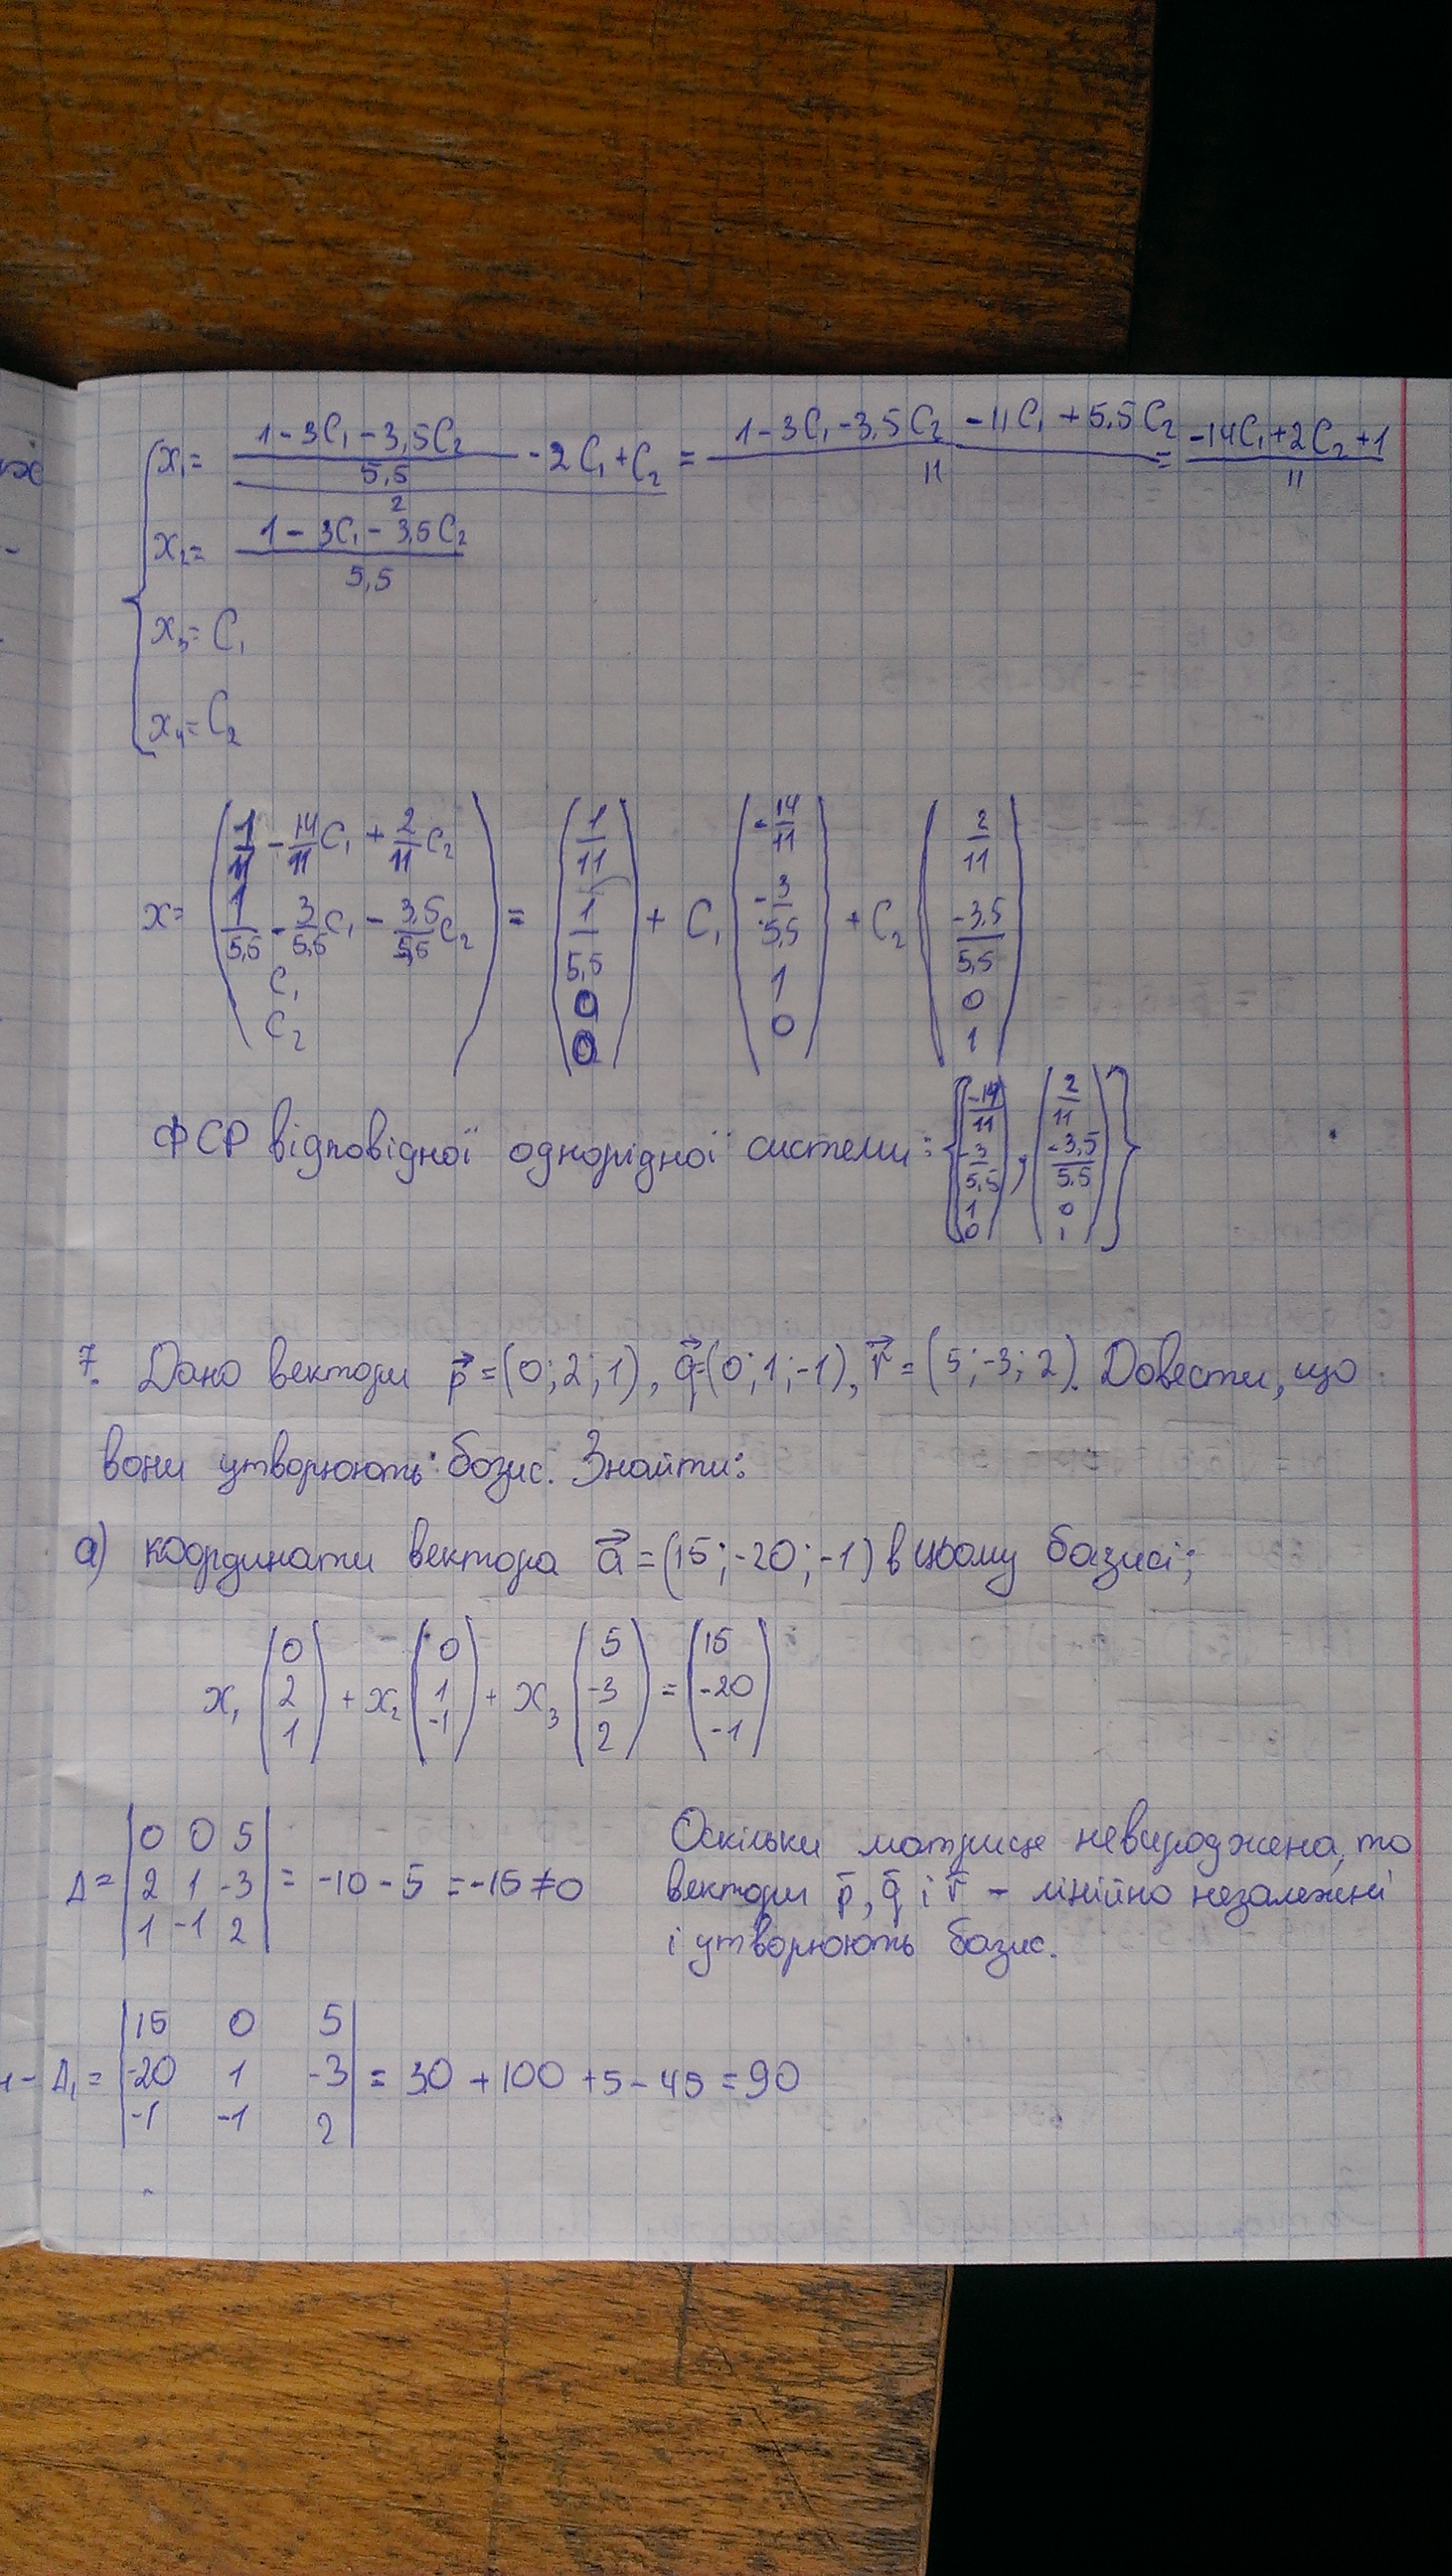 x₁ = ((1 - 3C₁ - 3,5C₂)/5,5 - 2C₁ + C₂)/2 = (1 - 3C₁ - 3,5C₂ - 11C₁ + 5,5C₂)/11 = (-14C₁ + 2C₂ + 1)/11
x₂ = (1 - 3C₁ - 3,5C₂)/5,5
x₃ = C₁
x₄ = C₂
x = (1/11 - 14/11 C₁ + 2/11 C₂; 1/5,5 - 3/5,5 C₁ - 3,5/5,5 C₂; C₁; C₂) = (1/11; 1/5,5; 0; 0) + C₁ (-14/11; -3/5,5; 1; 0) + C₂ (2/11; -3,5/5,5; 0; 1)
ФСР відповідної однорідної системи: {(-14/11; -3/5,5; 1; 0), (2/11; -3,5/5,5; 0; 1)}
7. Дано вектори p⃗ = (0; 2; 1), q⃗ = (0; 1; -1), r⃗ = (5; -3; 2). Довести, що
вони утворюють базис. Знайти:
а) координати вектора a⃗ = (15; -20; -1) в цьому базисі;
x₁ (0; 2; 1) + x₂ (0; 1; -1) + x₃ (5; -3; 2) = (15; -20; -1)
Δ = |0 0 5; 2 1 -3; 1 -1 2| = -10 - 5 = -15 ≠ 0
Оскільки матриця невироджена, то
вектори p̄, q̄ і r̄ - лінійно незалежні
і утворюють базис.
Δ₁ = |15 0 5; -20 1 -3; -1 -1 2| = 30 + 100 + 5 - 45 = 90